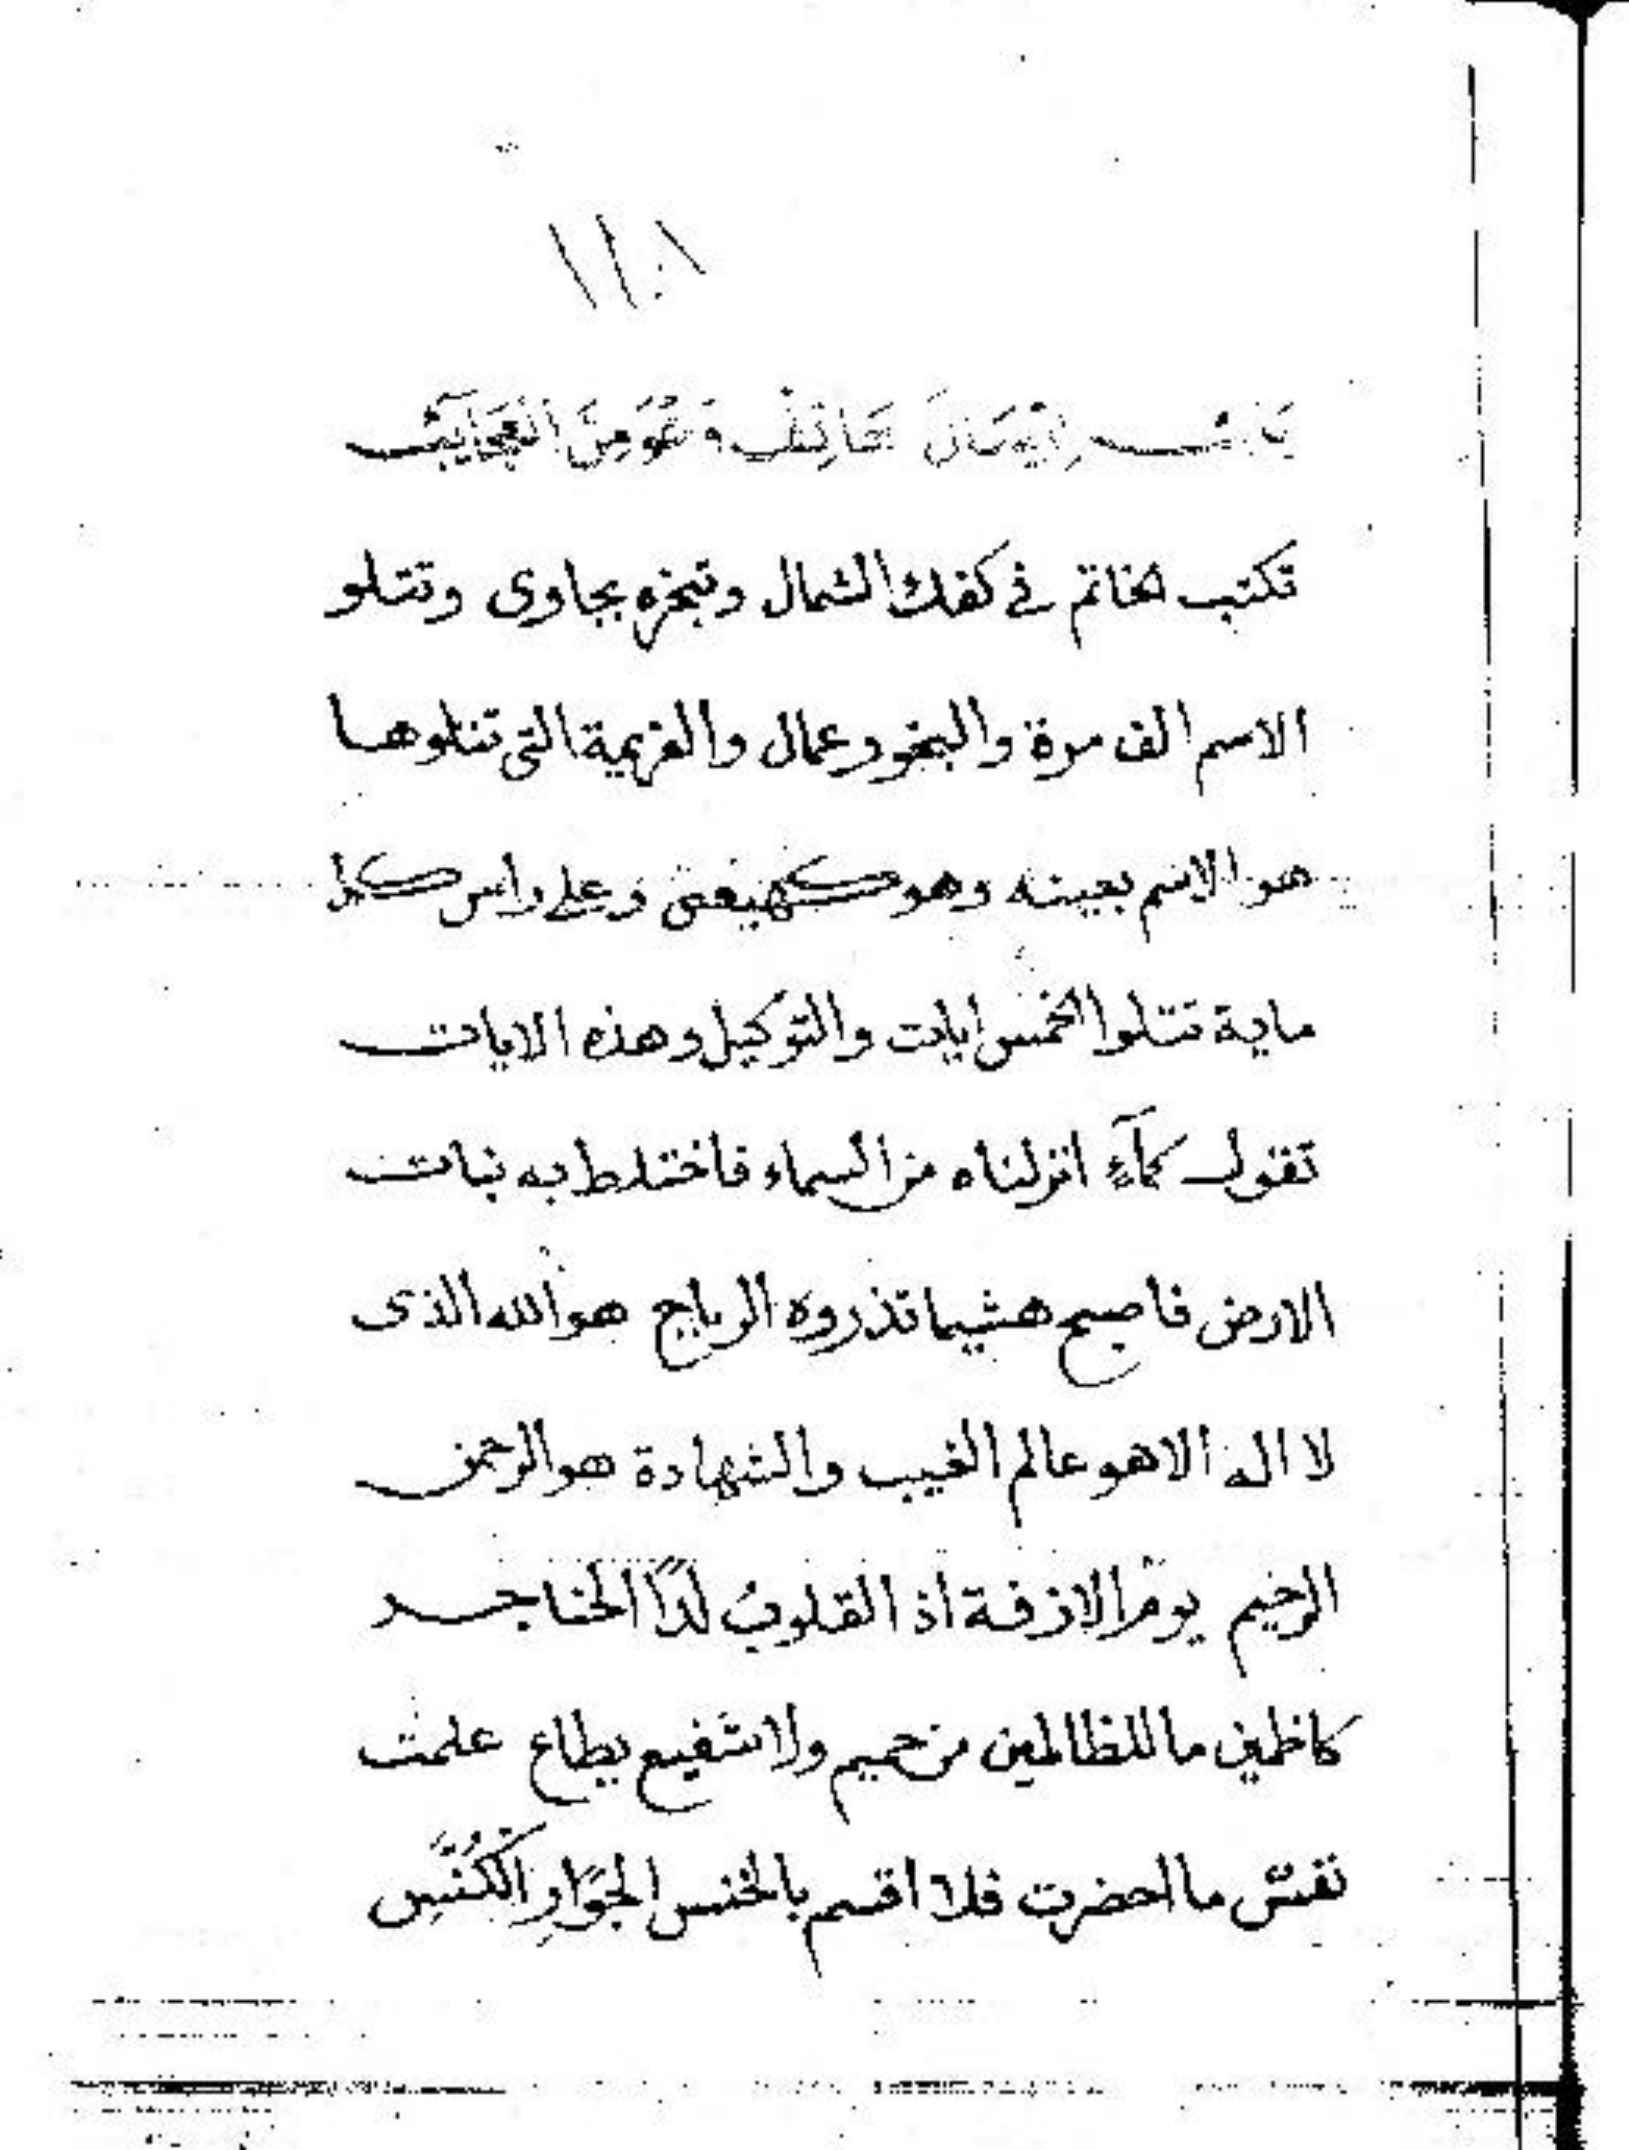 باب ارسال هاتف وهو من العجايب
تكتب الخاتم في كفك الشمال وتبخره بجاوى وتتلو
الاسم الف مرة والبخور عمال والعزيمة التى تتلوها
هو الاسم بعينه وهو كهيعص وعلى راس كل
ماية تتلوا الخمس ايات والتوكيل وهذه الايات
تقول كمآء انزلناه من السماء فاختلط به نبات
الارض فاصبح هشيما تذروه الرياح هو الله الذى
لا اله الا هو عالم الغيب والشهادة هو الرحمن
الرحيم يوم الازفة اذ القلوب لدا الحناجر
كاظمين ما للظالمين من حميم ولا شفيع يطاع علمت
نفس ما احضرت فلا اقسم بالخنس الجَوَارِ الكُنَّسِ